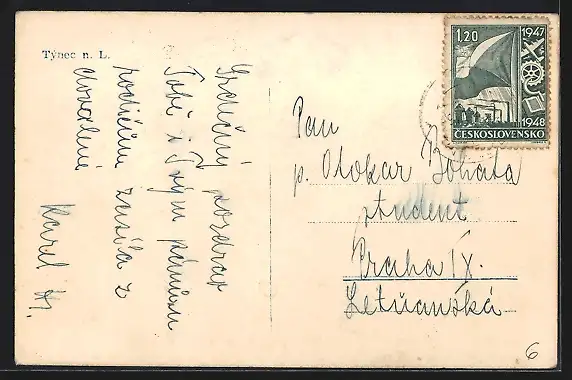 Týnec n. L.
Srdečný pozdrav
Tobě i Tvým pánům
rodičům zasílá z
dovolené
Karel
1,20
1947
1948
ČESKOSLOVENSKO
Pan
p. Otokar Bohata
student
Praha IX.
Letňanská
6